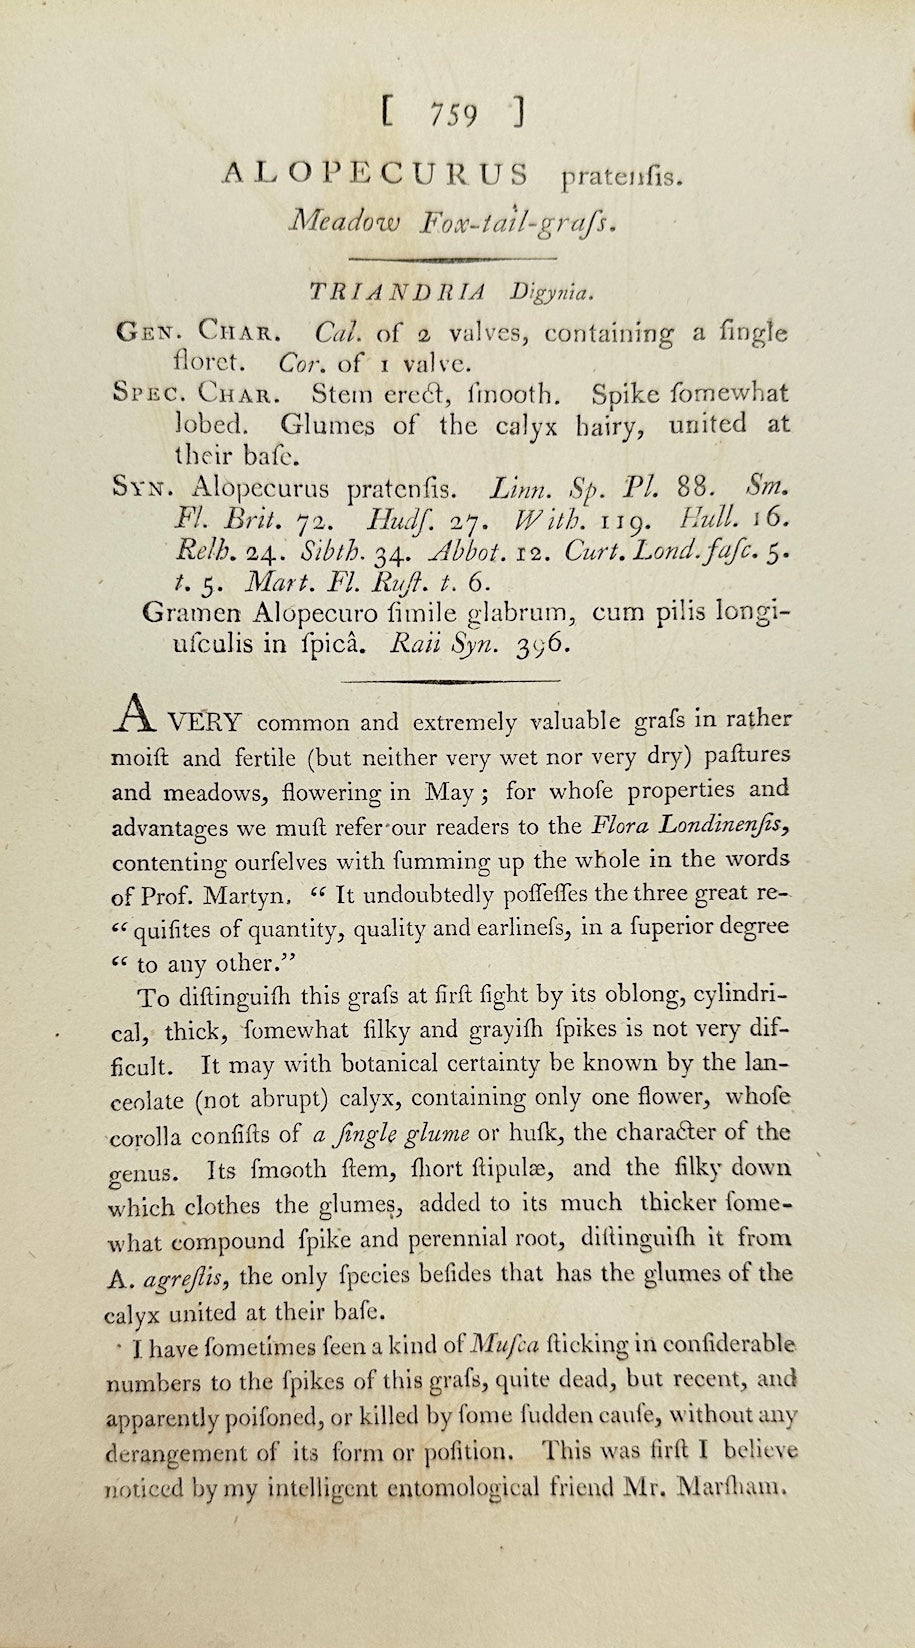 [ 759 ]
ALOPECURUS pratenſis.
Meadow Fox-tail-graſs.
TRIANDRIA Digynia.
GEN. CHAR. Cal. of 2 valves, containing a ſingle
floret. Cor. of 1 valve.
SPEC. CHAR. Stem erect, ſmooth. Spike ſomewhat
lobed. Glumes of the calyx hairy, united at
their baſe.
SYN. Alopecurus pratenſis. Linn. Sp. Pl. 88. Sm.
Fl. Brit. 72. Hudſ. 27. With. 119. Hull. 16.
Relh. 24. Sibth. 34. Abbot. 12. Curt. Lond. faſc. 5.
t. 5. Mart. Fl. Ruſt. t. 6.
Gramen Alopecuro ſimile glabrum, cum pilis longi-
uſculis in ſpicâ. Raii Syn. 396.
A VERY common and extremely valuable graſs in rather
moiſt and fertile (but neither very wet nor very dry) paſtures
and meadows, flowering in May; for whoſe properties and
advantages we muſt refer our readers to the Flora Londinenſis,
contenting ourſelves with ſumming up the whole in the words
of Prof. Martyn. “ It undoubtedly poſſeſſes the three great re-
“ quiſites of quantity, quality and earlineſs, in a ſuperior degree
“ to any other.”
To diſtinguiſh this graſs at firſt ſight by its oblong, cylindri-
cal, thick, ſomewhat ſilky and grayiſh ſpikes is not very dif-
ficult. It may with botanical certainty be known by the lan-
ceolate (not abrupt) calyx, containing only one flower, whoſe
corolla conſiſts of a ſingle glume or huſk, the character of the
genus. Its ſmooth ſtem, ſhort ſtipulæ, and the ſilky down
which clothes the glumes, added to its much thicker ſome-
what compound ſpike and perennial root, diſtinguiſh it from
A. agreſtis, the only ſpecies beſides that has the glumes of the
calyx united at their baſe.
I have ſometimes ſeen a kind of Muſca ſticking in conſiderable
numbers to the ſpikes of this graſs, quite dead, but recent, and
apparently poiſoned, or killed by ſome ſudden cauſe, without any
derangement of its form or poſition. This was firſt I believe
noticed by my intelligent entomological friend Mr. Marſham.